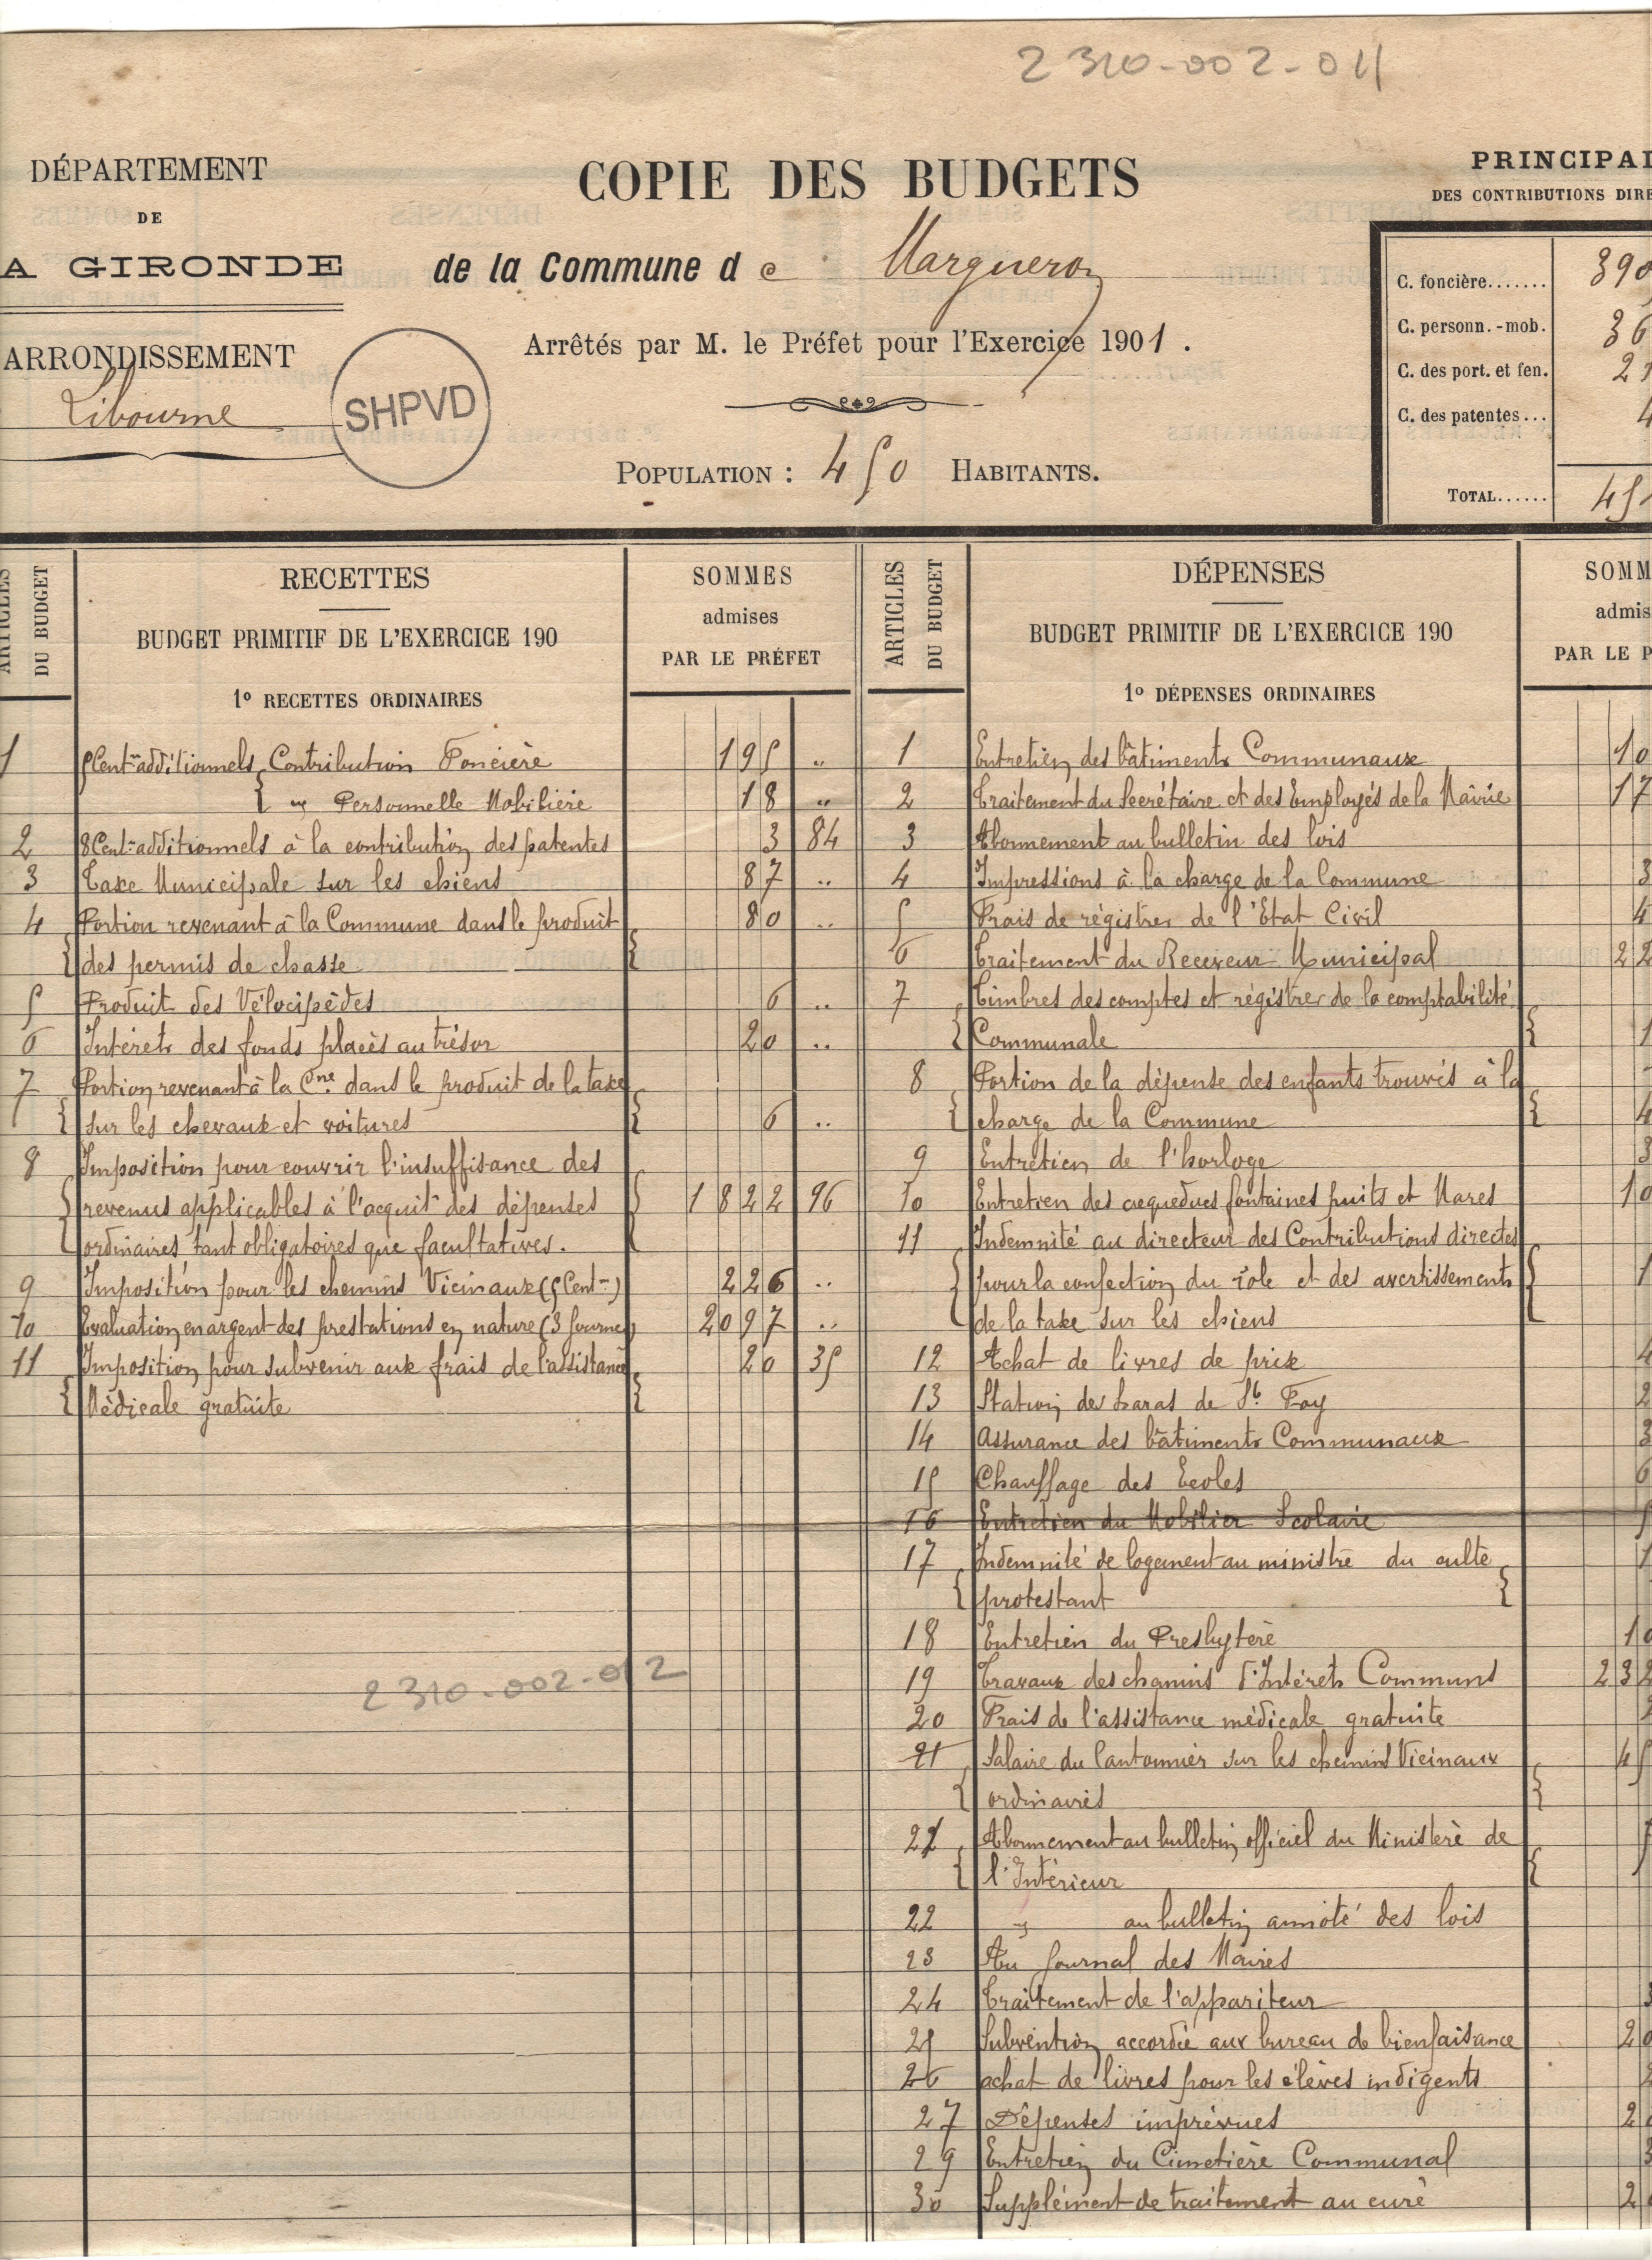 2310-002-011
DÉPARTEMENT
DE
A GIRONDE
ARRONDISSEMENT
Libourne
SHPVD
COPIE DES BUDGETS
de la Commune de Margueron
Arrêtés par M. le Préfet pour l'Exercice 1901.
POPULATION : 450 HABITANTS.
PRINCIPAL
DES CONTRIBUTIONS DIRE
C. foncière....... 390
C. personn.-mob. 36
C. des port. et fen. 2
C. des patentes... 4
TOTAL...... 45
ARTICLES DU BUDGET
RECETTES
BUDGET PRIMITIF DE L'EXERCICE 190
1º RECETTES ORDINAIRES
SOMMES
admises
PAR LE PRÉFET
1 5 Cent. additionnels Contribution Foncière 195 "
" Personnelle Mobilière 18 "
2 8 Cent. additionnels à la contribution des patentes 3 84
3 Taxe Municipale sur les chiens 87 "
4 Portion revenant à la Commune dans le produit 80 "
des permis de chasse
5 Produit des Vélocipèdes 6 "
6 Intérêts des fonds placés au trésor 20 "
7 Portion revenant à la Cne dans le produit de la taxe
sur les chevaux et voitures 6 "
8 Imposition pour couvrir l'insuffisance des
revenus applicables à l'acquit des dépenses 1822 96
ordinaires tant obligatoires que facultatives.
9 Imposition pour les chemins Vicinaux (5 Cent.) 226 "
10 Evaluation en argent des prestations en nature (3 journées) 2097 "
11 Imposition pour subvenir aux frais de l'assistance 20 35
Médicale gratuite
2310-002-012
ARTICLES DU BUDGET
DÉPENSES
BUDGET PRIMITIF DE L'EXERCICE 190
1º DÉPENSES ORDINAIRES
SOMM
admis
PAR LE P
1 Entretien des bâtiments Communaux 10
2 Traitement du Secrétaire et des Employés de la Mairie 17
3 Abonnement au bulletin des lois
4 Impressions à la charge de la Commune 3
5 Frais de régistres de l'Etat Civil 4
6 Traitement du Receveur Municipal 22
7 Timbres des comptes et régistres de la comptabilité
Communale 1
8 Portion de la dépense des enfants trouvés à la
charge de la Commune 4
9 Entretien de l'horloge 3
10 Entretien des aequeducs fontaines puits et Mares 10
11 Indemnité au directeur des Contributions directes
pour la confection du role et des avertissements 1
de la taxe sur les chiens
12 Achat de livres de prix 4
13 Station des haras de Ste Foy 2
14 Assurance des bâtiments Communaux 3
15 Chauffage des Ecoles 6
16 Entretien du Mobilier Scolaire
17 Indemnité de logement au ministre du culte 1
protestant
18 Entretien du Presbytère 10
19 Travaux des chemins d'Intérêts Communs 232
20 Frais de l'assistance médicale gratuite
21 Salaire du Cantonnier sur les chemins Vicinaux 45
ordinaires
22 Abonnement au bulletin officiel du Ministère de
l'Intérieur
22 " au bulletin annoté des lois
23 Au Journal des Maires
24 Traitement de l'appariteur 3
25 Subvention accordée aux bureau de bienfaisance 20
26 achat de livres pour les élèves indigents
27 Dépenses imprévues 2
29 Entretien du Cimetière Communal 3
30 Supplément de traitement au curé 2